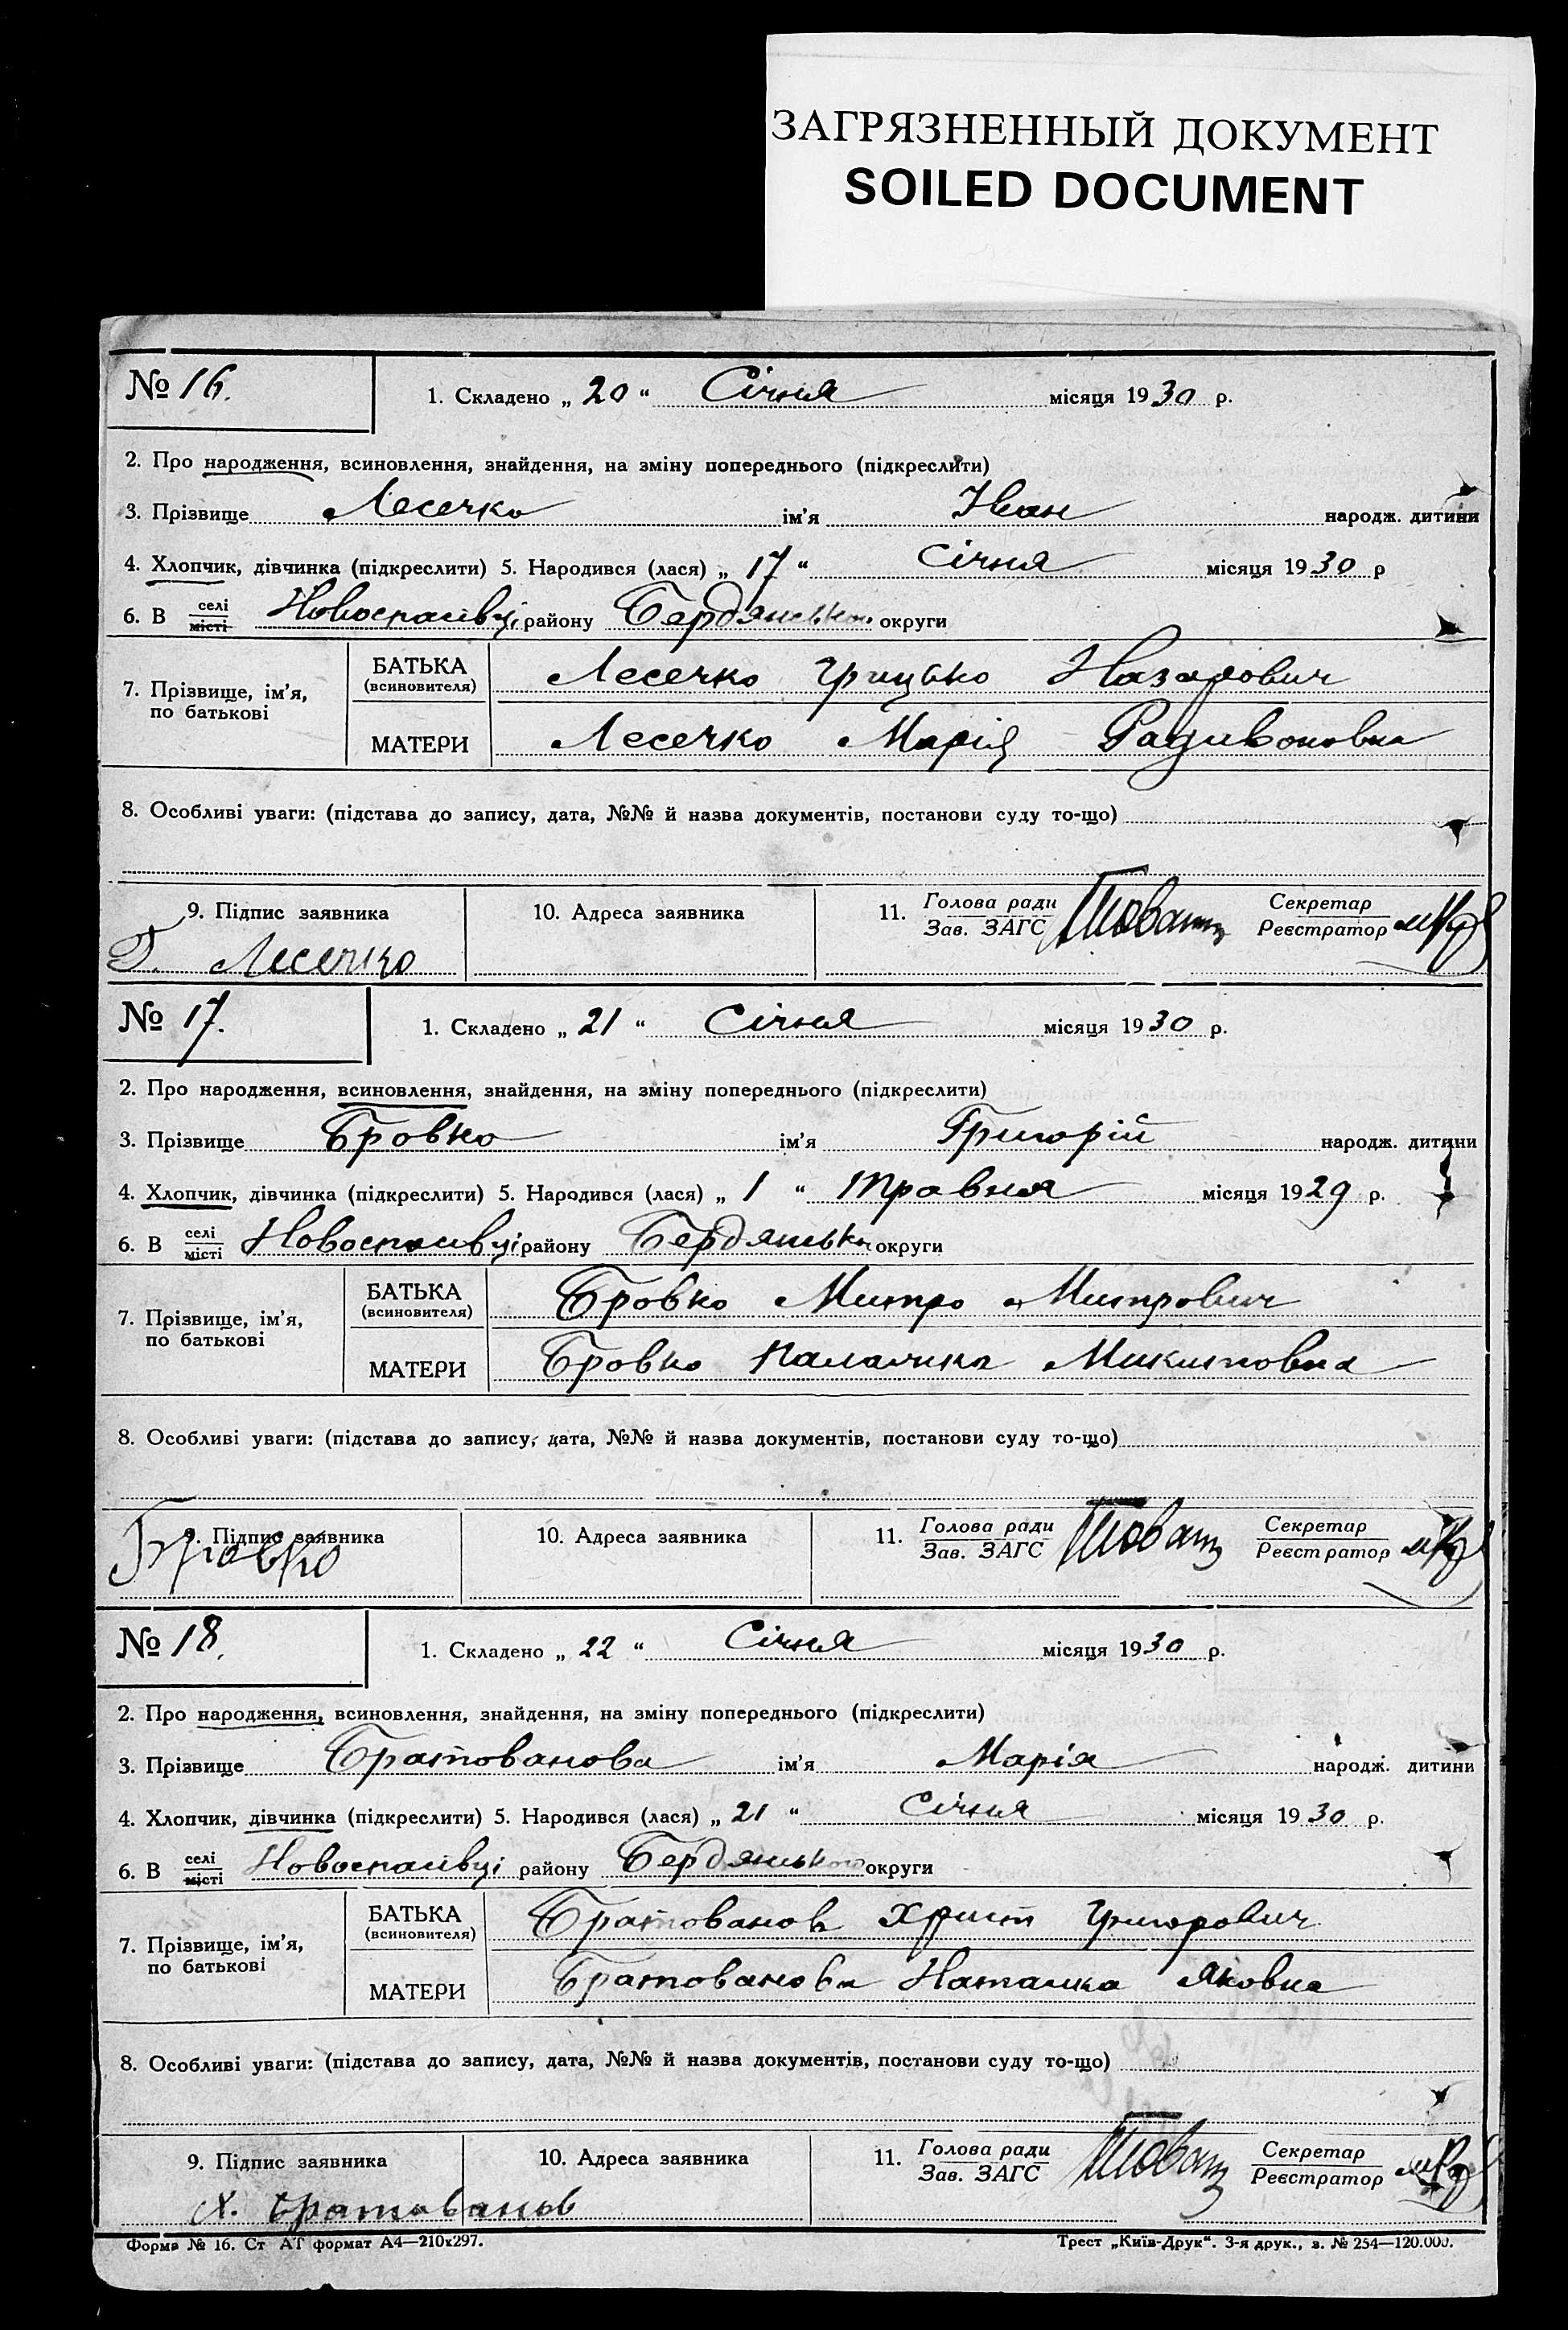 ЗАГРЯЗНЕННЫЙ ДОКУМЕНТ
SOILED DOCUMENT
№ 16. 1. Складено „ 20 “ Січня місяця 1930 р.
2. Про народження, всиновлення, знайдення, на зміну попереднього (підкреслити)
3. Прізвище Лесечко ім'я Іван народж. дитини
4. Хлопчик, дівчинка (підкреслити) 5. Народився (лася) „ 17 “ Січня місяця 1930 р
6. В селі місті Новоспаівці району Бердянсько округи
7. Прізвище, ім'я, по батькові
БАТЬКА (всиновителя) Лесечко Грицько Назарович
МАТЕРИ Лесечко Марія Радивоновна
8. Особливі уваги: (підстава до запису, дата, №№ й назва документів, постанови суду то-що)
9. Підпис заявника 10. Адреса заявника 11. Голова ради Зав. ЗАГС Секретар Реєстратор
Г. Лесечко
№ 17. 1. Складено „ 21 “ Січня місяця 1930 р.
2. Про народження, всиновлення, знайдення, на зміну попереднього (підкреслити)
3. Прізвище Бровко ім'я Григорій народж. дитини
4. Хлопчик, дівчинка (підкреслити) 5. Народився (лася) „ 1 “ Травня місяця 1929 р.
6. В селі місті Новоспаівці району Бердянсько округи
7. Прізвище, ім'я, по батькові
БАТЬКА (всиновителя) Бровко Митро Митрович
МАТЕРИ Бровко Палажка Микитовна
8. Особливі уваги: (підстава до запису, дата, №№ й назва документів, постанови суду то-що)
9. Підпис заявника 10. Адреса заявника 11. Голова ради Зав. ЗАГС Секретар Реєстратор
Бровко
№ 18. 1. Складено „ 22 “ Січня місяця 1930 р.
2. Про народження, всиновлення, знайдення, на зміну попереднього (підкреслити)
3. Прізвище Братованова ім'я Марія народж. дитини
4. Хлопчик, дівчинка (підкреслити) 5. Народився (лася) „ 21 “ Січня місяця 1930 р.
6. В селі місті Новоспаівці району Бердянсько округи
7. Прізвище, ім'я, по батькові
БАТЬКА (всиновителя) Братованов Христ Григорович
МАТЕРИ Братованова Наталка Яковна
8. Особливі уваги: (підстава до запису, дата, №№ й назва документів, постанови суду то-що)
9. Підпис заявника 10. Адреса заявника 11. Голова ради Зав. ЗАГС Секретар Реєстратор
Х. Братованов
Форма № 16. Ст АТ формат А4—210x297. Трест „Київ-Друк“. 3-я друк., з. № 254—120.000.